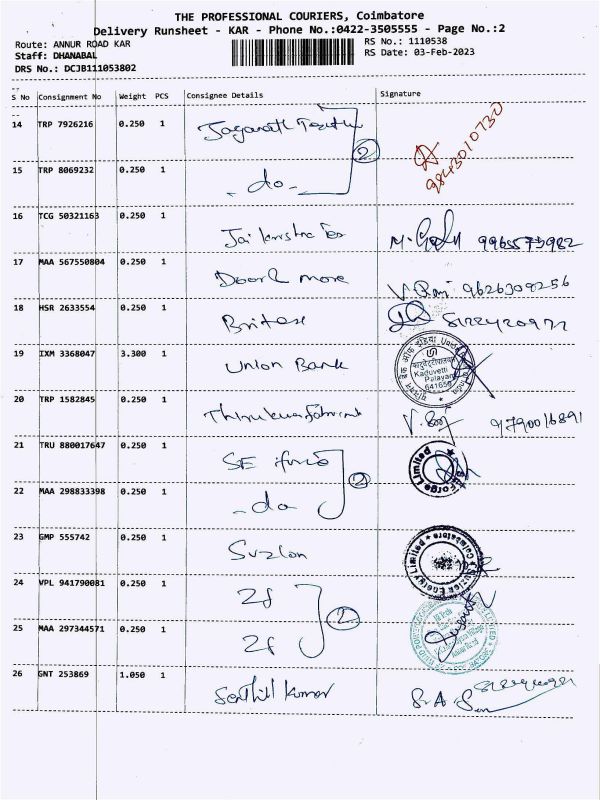 THE PROFESSIONAL COURIERS, Coimbatore
Delivery Runsheet - KAR - Phone No.:0422-3505555 - Page No.:2
Route: ANNUR ROAD KAR
RS No.: 1110538
Staff: DHANABAL
RS Date: 03-Feb-2023
DRS No.: DCJB111053802
S No Consignment No Weight PCS Consignee Details Signature
14 TRP 7926216 0.250 1
2
9843010730
15 TRP 8069232 0.250 1 - do -
16 TCG 50321163 0.250 1
17 MAA 567550804 0.250 1 9626309256
18 HSR 2633554 0.250 1
19 IXM 3368047 3.300 1 Union Bank
Kaduvetti
Palayam
641659
20 TRP 1582845 0.250 1 9790016891
21 TRU 880017647 0.250 1 SE
2
Forge Limited
22 MAA 298833398 0.250 1 - do -
23 GMP 555742 0.250 1 Suzlon
Energy Limited * Coimbatore *
24 VPL 941790081 0.250 1 2f
2
25 MAA 297344571 0.250 1 2f
26 GNT 253869 1.050 1 Senthil Kumar